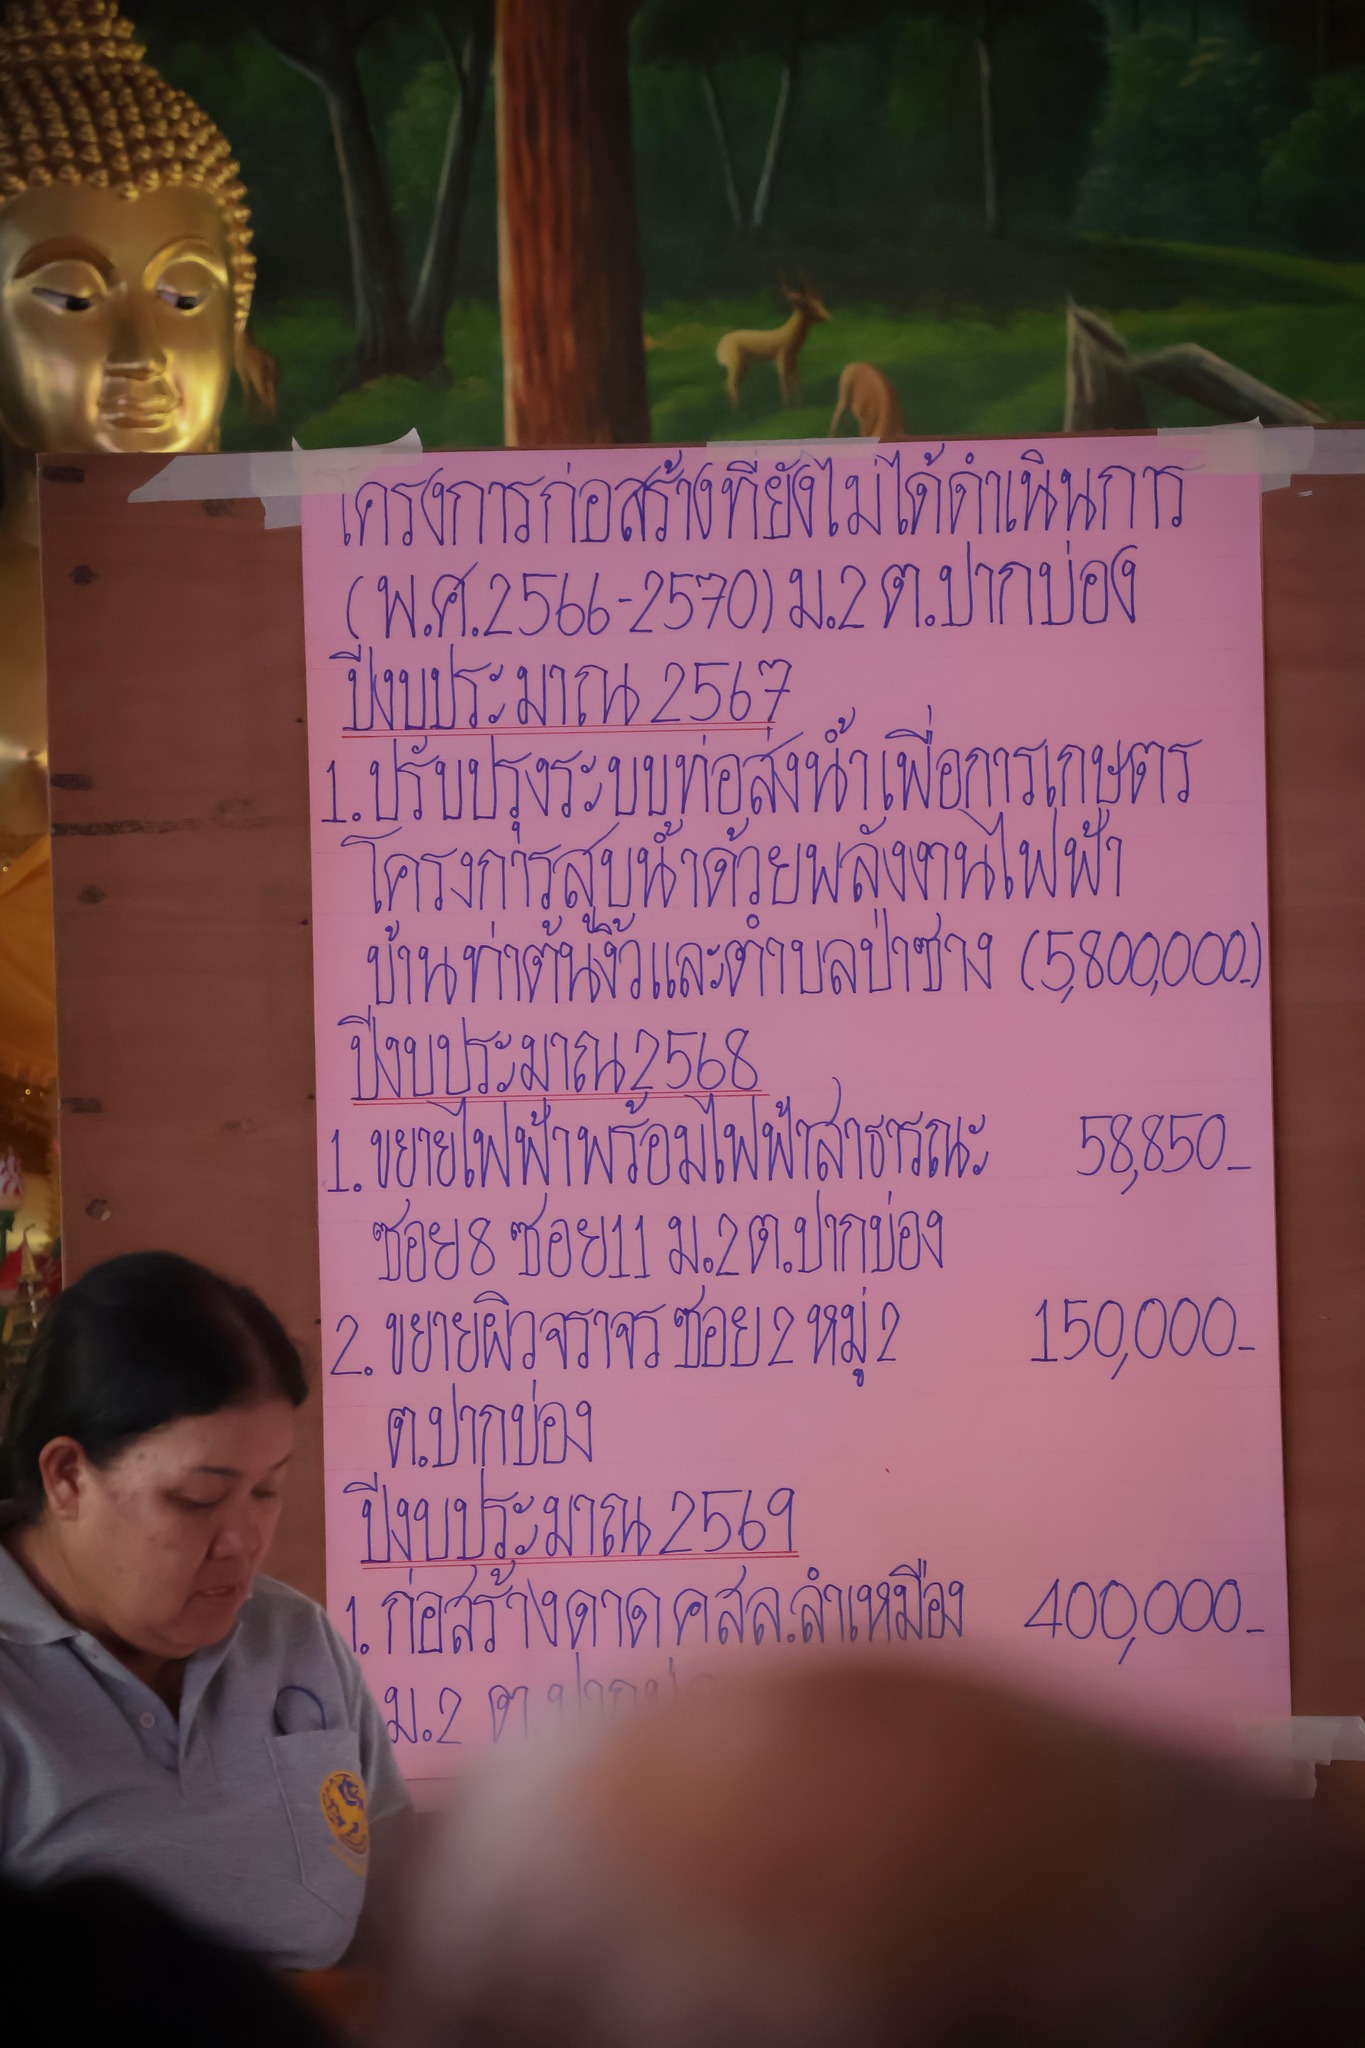 โครงการก่อสร้างที่ยังไม่ได้ดำเนินการ
(พ.ศ.2566-2570) ม.2 ต.ปากบ่อง
ปีงบประมาณ 2567
1. ปรับปรุงระบบท่อส่งน้ำเพื่อการเกษตร
โครงการสูบน้ำด้วยพลังงานไฟฟ้า
บ้านท่าต้นงิ้วและตำบลป่าซาง (5,800,000.-)
ปีงบประมาณ 2568
1. ขยายไฟฟ้าพร้อมไฟฟ้าสาธารณะ 58,850.-
ซอย 8 ซอย 11 ม.2 ต.ปากบ่อง
2. ขยายผิวจราจร ซอย 2 หมู่ 2 150,000.-
ต.ปากบ่อง
ปีงบประมาณ 2569
1. ก่อสร้างดาด คสล.ลำเหมือง 400,000.-
ม.2 ต.ปากบ่อง